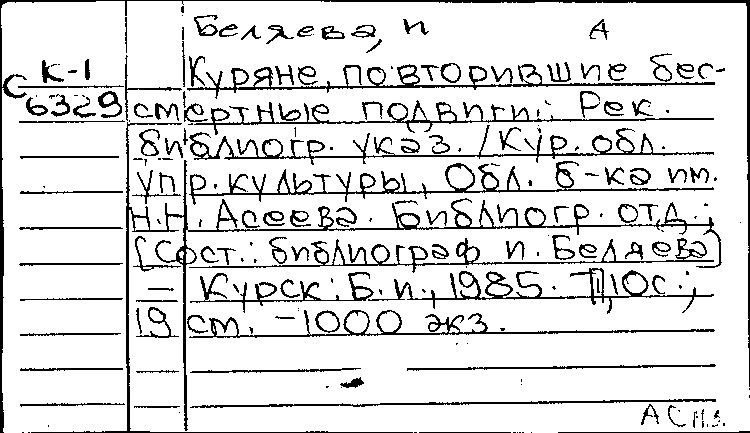 Беляева, И А
К-1
С 6329
Куряне, повторившие бес-
смертные подвиги: Рек.
библиогр. указ. /Кур. обл.
упр. культуры, Обл. б-ка им.
Н.Н. Асеева. Библиогр. отд.;
[Сост.: библиограф И. Беляева]
— Курск: Б.и., 1985. 10с.;
19 см. -1000 экз.